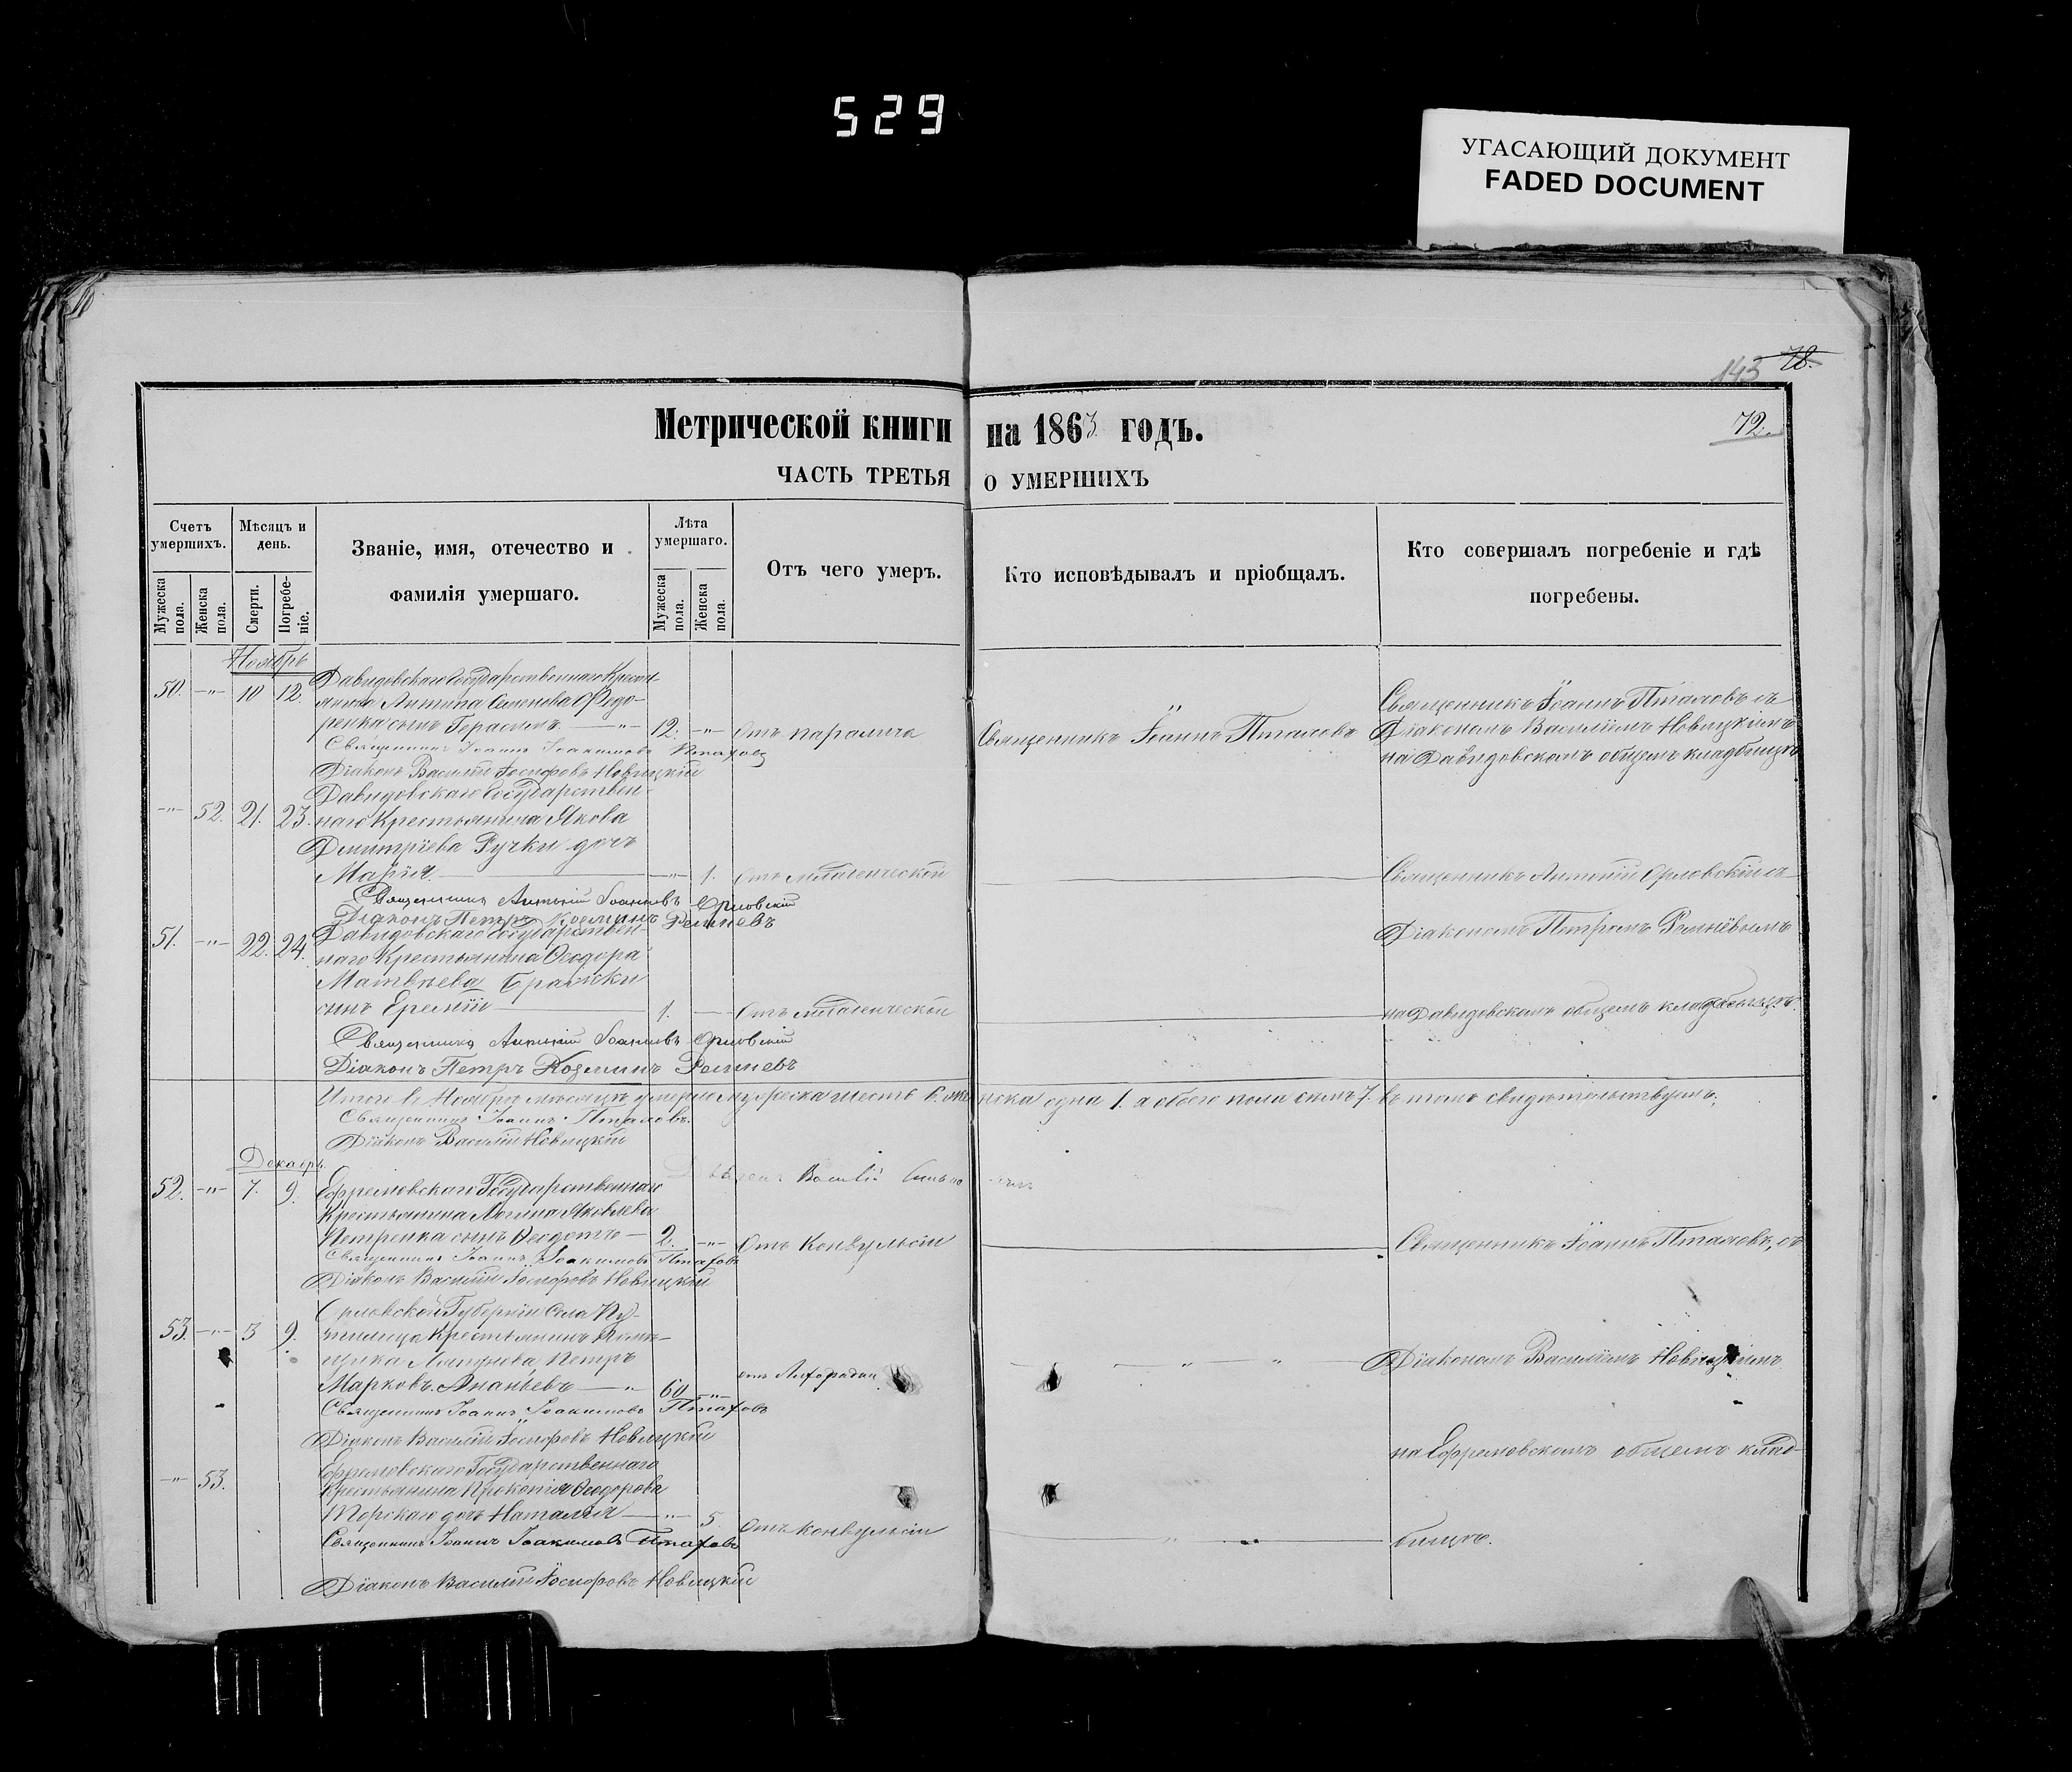 529
УГАСАЮЩИЙ ДОКУМЕНТ
FADED DOCUMENT
143 78.
72.
Метрической книги на 1863 годъ.
ЧАСТЬ ТРЕТЬЯ О УМЕРШИХЪ
Счетъ умершихъ.
Мѣсяцъ и день.
Званіе, имя, отечество и фамилія умершаго.
Лѣта умершаго.
Отъ чего умеръ.
Кто исповѣдывалъ и пріобщалъ.
Кто совершалъ погребеніе и гдѣ погребены.
Мужеска пола.
Женска пола.
Смерти.
Погребеніе.
Мужеска пола.
Женска пола.
Ноябрь
50. -"- 10 12. Давидовскаго Государственнаго Кресть-
янина Антипа Семенова Федо-
ренка сынъ Герасимъ -"- 12. -"- Отъ паралича Священникъ Іоаннъ Пталовъ
Священникъ Іоаннъ Пталовъ съ
Діакономъ Василіемъ Новицкимъ
на Давидовскомъ общемъ кладбищѣ
Священникъ Іоаннъ Іоакимовъ
Діаконъ Василій Іосифовъ Новицкій
-"- 52. 21. 23. Давидовскаго Государствен-
наго Крестьянина Якова
Дмитріева Ручки дочь
Марія -"- 1. Отъ младенческой
Священникъ Антоній Орловскій съ
Священникъ Антоній Іоанновъ Орловскій
Діаконъ Петръ Козминъ
Діакономъ Петромъ
51. -"- 22. 24. Давидовскаго Государствен-
наго Крестьянина Ѳеодора
Матвѣева
сынъ Еремій 1. Отъ младенческой
на Давидовскомъ общемъ кладбищѣ.
Священникъ Антоній Іоанновъ Орловскій
Діаконъ Петръ Козминъ
Итого въ Ноябрѣ мѣсяцѣ умерло мужеска шесть 6. женска одна 1. а обоего пола семь 7. въ томъ свидѣтельствуемъ:
Священникъ Іоаннъ Пталовъ.
Діаконъ Василій Новицкій
Декабрь
52. -"- 7. 9. Ефремовскаго Государственнаго
Крестьянина Логина Яковлева
Петренка сынъ Ѳеодотъ 2. -"- Отъ Конвульсіи
Священникъ Іоаннъ Пталовъ, съ
Священникъ Іоаннъ Іоакимовъ
Діаконъ Василій Іосифовъ Новицкій
53. -"- 3 9. Орловской Губерніи Села
Крестьянинъ Помѣ-
щика Петръ
Марковъ Ананьевъ -"- 60 -"- отъ Лихорадки
Діакономъ Василіемъ Новицкимъ
Священникъ Іоаннъ Іоакимовъ
Діаконъ Василій Іосифовъ Новицкій
на Ефремовскомъ общемъ клад-
-"- 53. Ефремовскаго Государственнаго
Крестьянина Прокопія Ѳеодорова
дочь Наталія -"- 5. Отъ конвульсіи
бищѣ.
Священникъ Іоаннъ Іоакимовъ
Діаконъ Василій Іосифовъ Новицкій